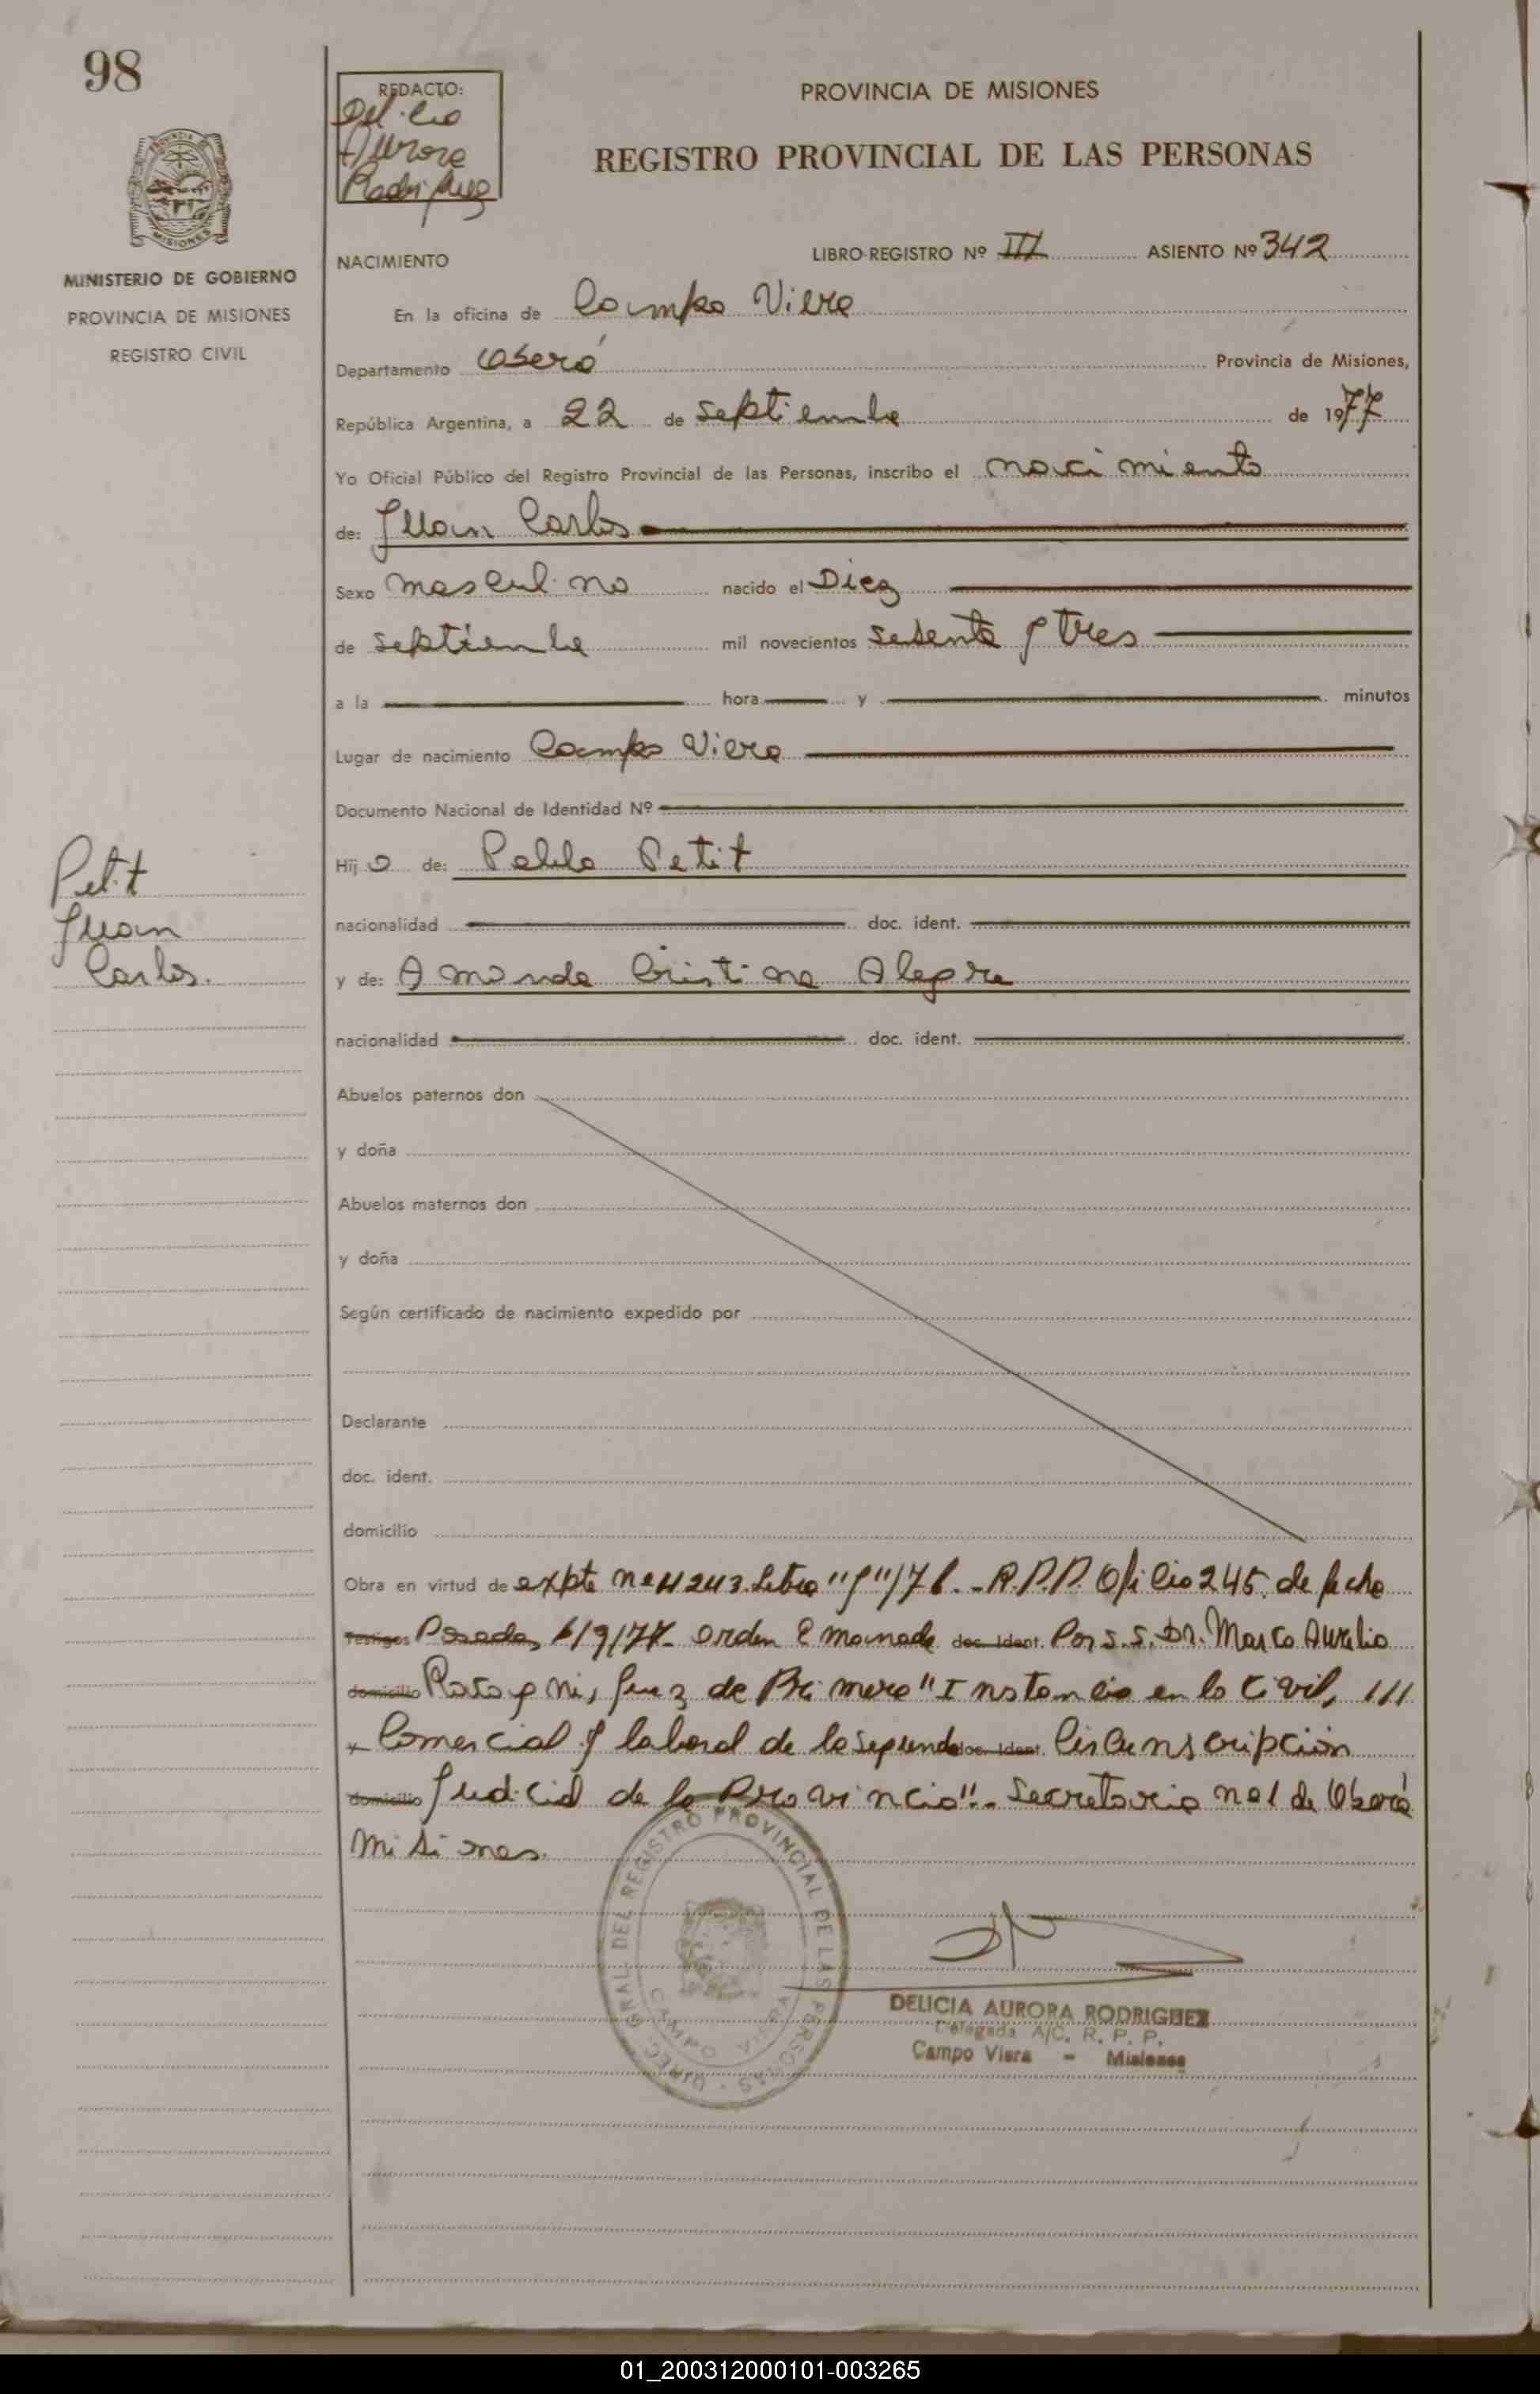 98
REDACTO:
Delicia
Aurora
Rodriguez
PROVINCIA DE MISIONES
REGISTRO PROVINCIAL DE LAS PERSONAS
MISIONES
MINISTERIO DE GOBIERNO
PROVINCIA DE MISIONES
REGISTRO CIVIL
NACIMIENTO
LIBRO REGISTRO Nº III ASIENTO Nº 342
En la oficina de Campo Viera
Departamento Oberá Provincia de Misiones,
República Argentina, a 22 de septiembre de 1977
Yo Oficial Público del Registro Provincial de las Personas, inscribo el nacimiento
de: Juan Carlos
Sexo masculino nacido el Diez
de septiembre mil novecientos setenta y tres
a la hora y minutos
Lugar de nacimiento Campo Viera
Documento Nacional de Identidad Nº
Hijo de: Pablo Petit
Petit
Juan
Carlos.
nacionalidad doc. ident.
y de: Amanda Cristina Alegre
nacionalidad doc. ident.
Abuelos paternos don
y doña
Abuelos maternos don
y doña
Según certificado de nacimiento expedido por
Declarante
doc. ident.
domicilio
Obra en virtud de expte nº 4243 Letra "J"/76.- R.P.P. Oficio 245, de fecha
Testigos Posadas, 6/9/77- orden Emanada doc. ident. Por S.S. Dr. Marco Aurelio
domicilio Juez de Primera "Instancia en lo Civil, ///
Comercial y laboral de la segunda doc. ident. Circunscripción
domicilio Judicial de la Provincia".- Secretaria nº 1 de Oberá
Misiones.
DIREC. GRAL. DEL REGISTRO PROVINCIAL DE LAS PERSONAS
CAMPO VIERA
DELICIA AURORA RODRIGUEZ
Delegada A/C. R. P. P.
Campo Viera - Misiones
01_200312000101-003265